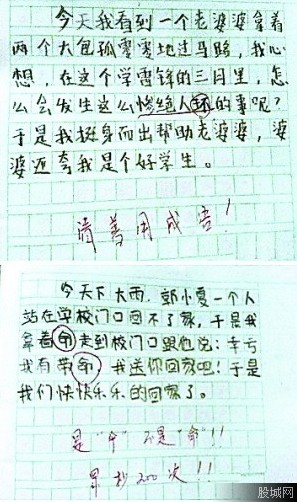 今天我看到一个老婆婆拿着
两个大包孤零零地过马路，我心
想，在这个学雷锋的三月里，怎
么会发生这么惨绝人环的事呢？
于是我挺身而出帮助老婆婆，婆
婆还夸我是个好学生。
请善用成语！
今天下大雨，郭小雯一个人
站在学校门口回不了家，于是我
拿着命走到校门口跟他说：幸亏
我有带命，我送你回家吧！于是
我们快快乐乐的回家了。
是“伞”不是“命”！！
罚抄200次！！
股城网